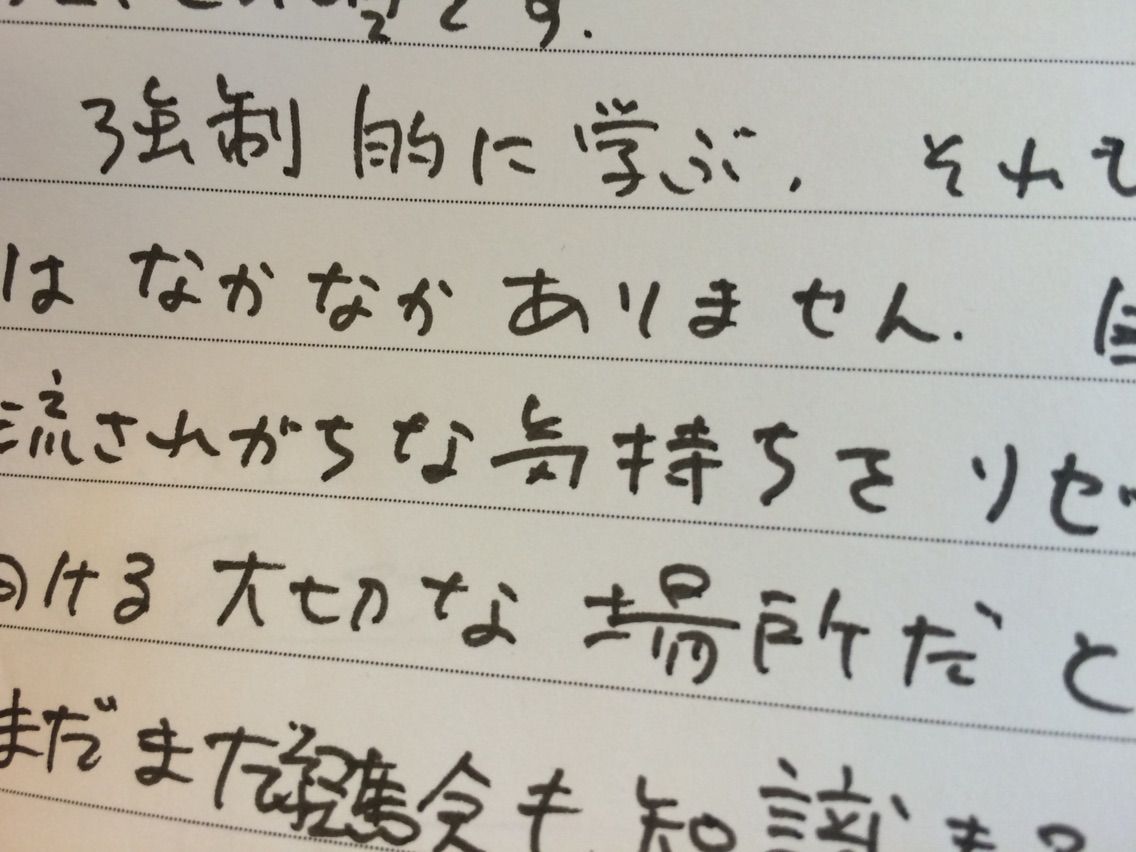 です.
強制的に学ぶ, それで
はなかなかありません.
流されがちな気持ちをリセッ
向ける大切な場所だと
まだまだ経験も知識も